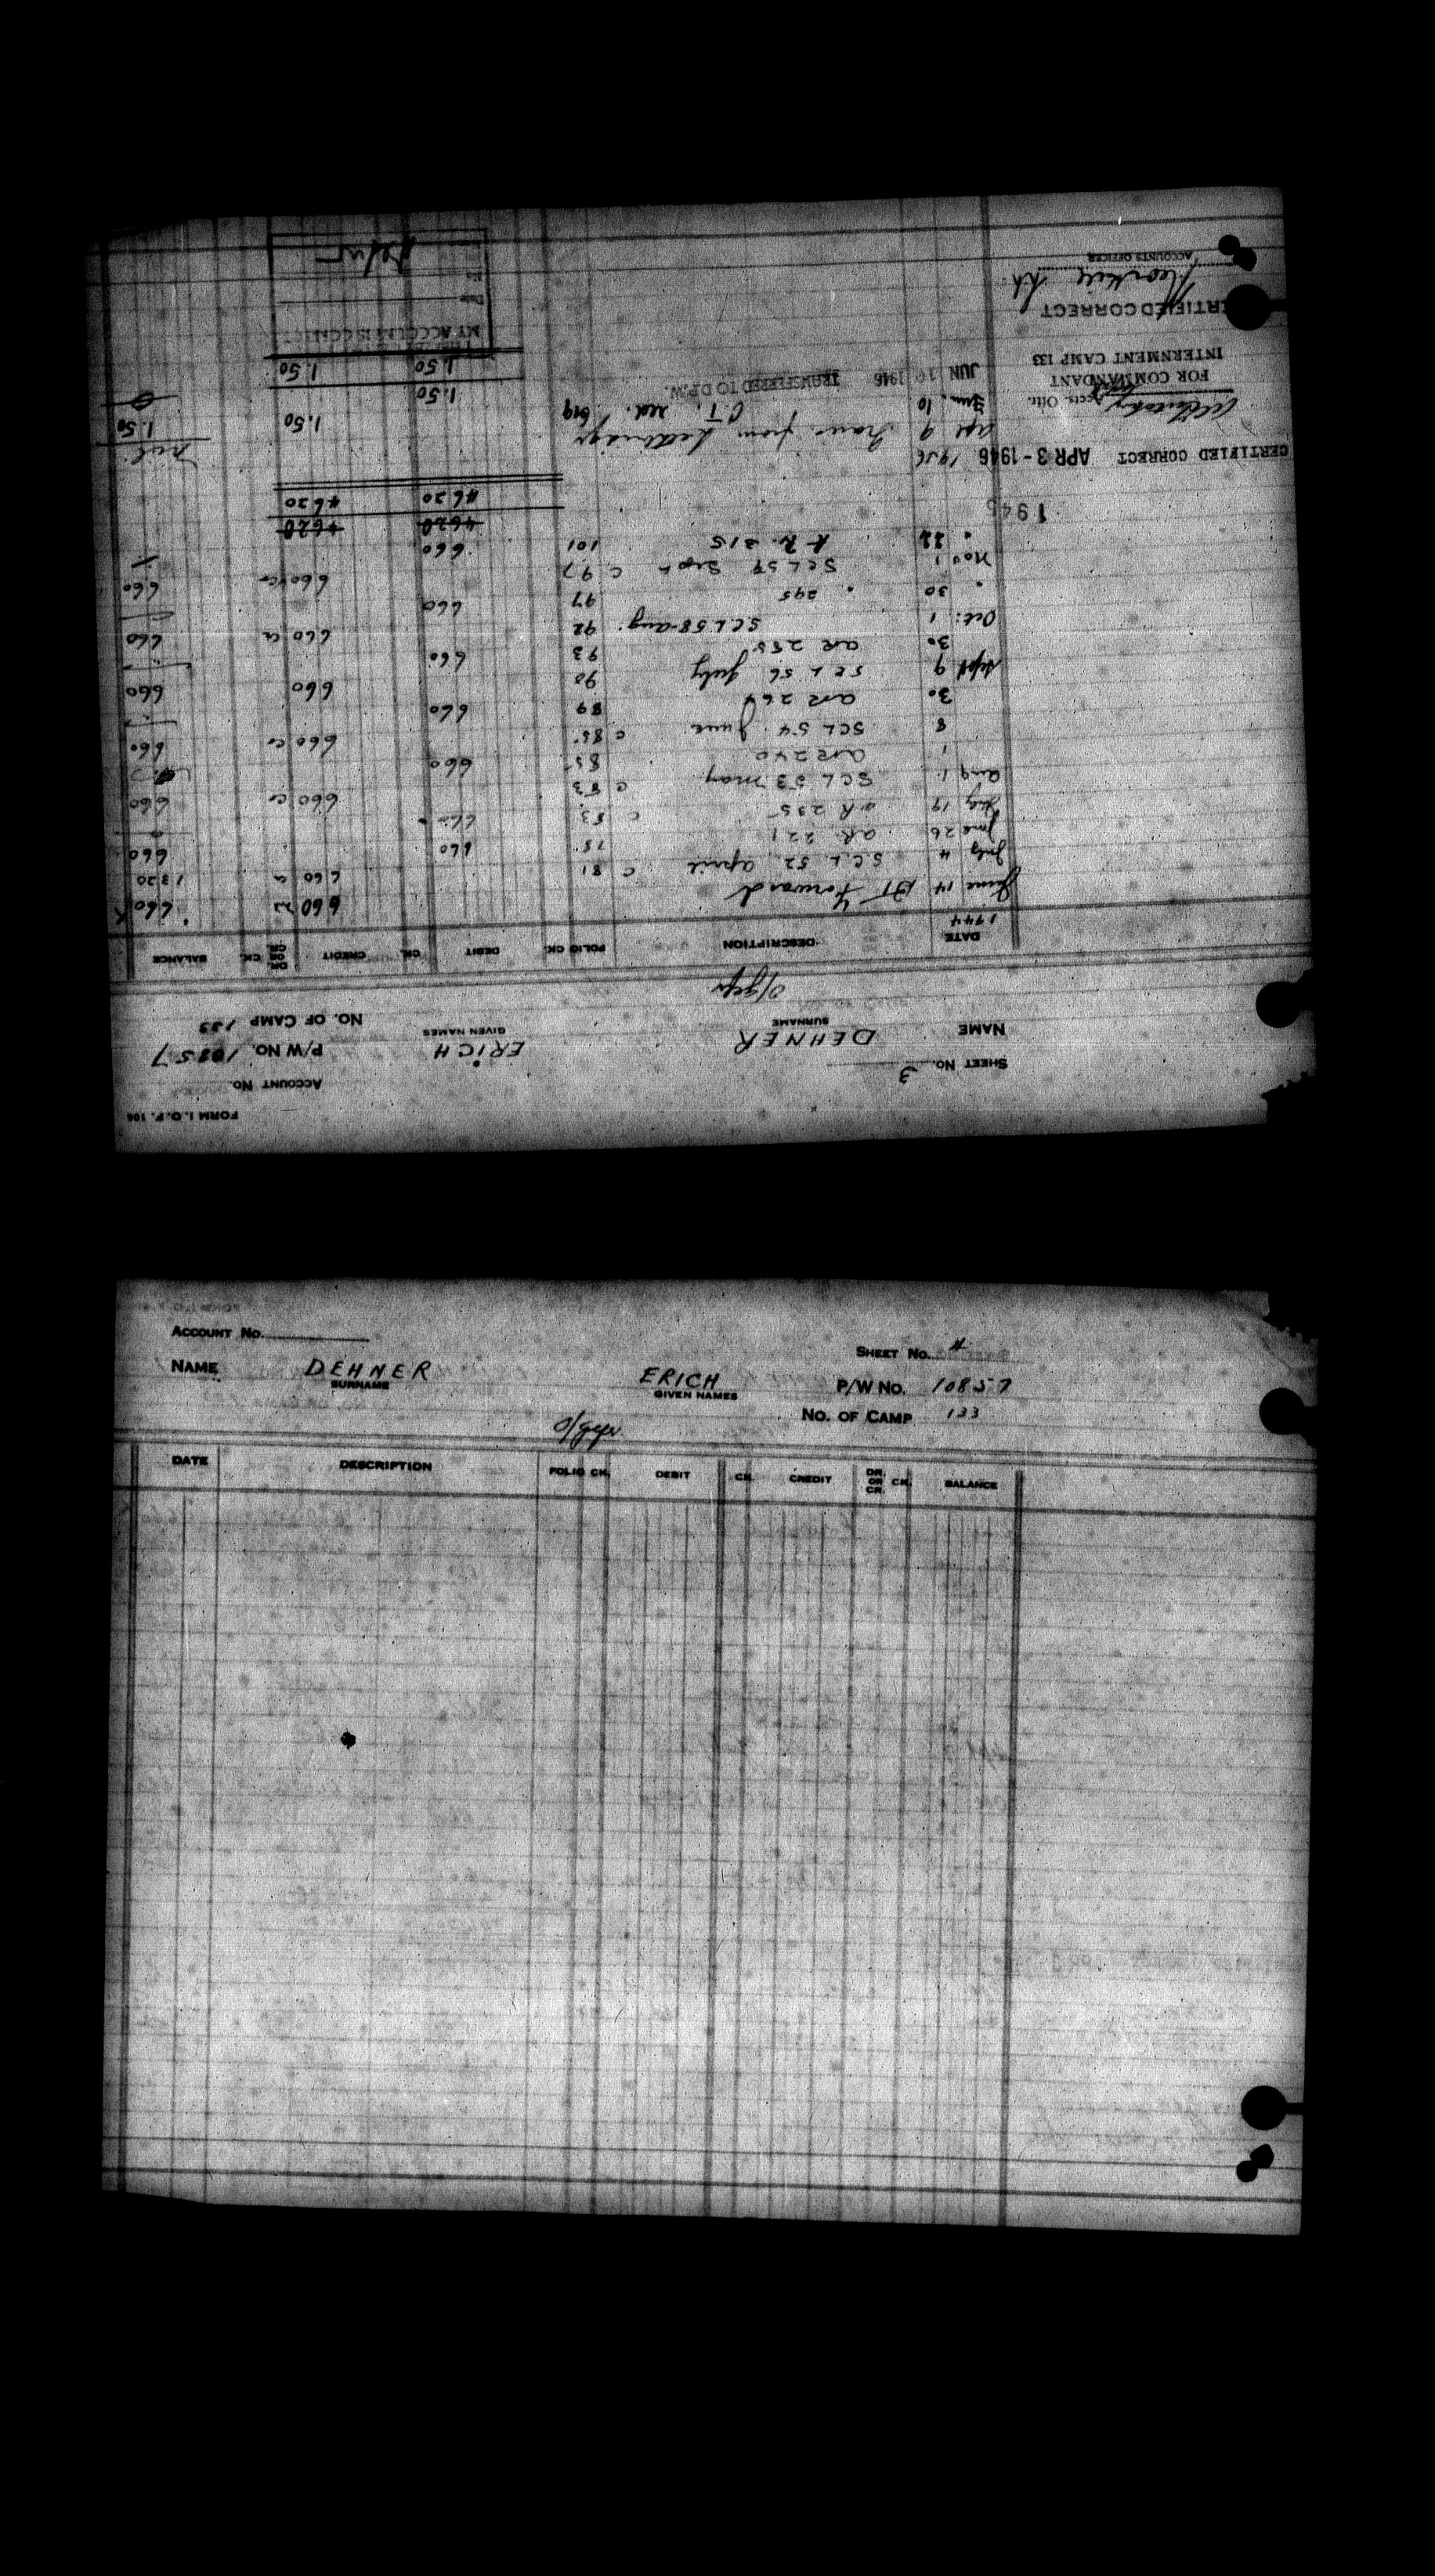 FORM I.O.P. 106
ACCOUNT No.
SHEET No. 3
P/W No. 10857
NAME DEHNER ERICH
SURNAME GIVEN NAMES
NO. OF CAMP 133
O/Gefr
DATE DESCRIPTION FOLIO CK. DEBIT CK. CREDIT DR. OR CR. CK. BALANCE
1944
June 14 BT Forward 660 660
July 4 S.C.L. 52 april C 81 660 1320
June 26 AR. 221 78 660 660
July 19 AR 235 C 83
Aug 1 SCL 53 may C 83 660 cr 660
1 AR 240 85 660
8 SCL 54 June C 85 660 cr 660
30 AR 264 89 660
Sept 9 SCL 56 July 90 660 660
30 AR 285 93 660
Oct. 1 SCL 58 - aug. 92 660 cr 660
" 30 " 295 97 660
Nov 1 SCL 59 Sept C 97 660 cr 660
" 22 A.R. 315 101 660
4620 4620
4620 4620
1945
CERTIFIED CORRECT APR 3 - 1946
1946
Nil
Apl 9 Trans from Lethbridge 1.50 1.50
Jun. 10 C.T. red. 619 1.50
JUN 10 1946 TRANSFERRED TO D.P.W.
1.50 1.50
Accts. Offr.
FOR COMMANDANT
INTERNMENT CAMP 133
CERTIFIED CORRECT
ACCOUNTS OFFICER
MY ACCOUNT IS CORRECT
Date
ACCOUNT No.
SHEET No. 4
NAME DEHNER ERICH P/W No. 10857
SURNAME GIVEN NAMES
NO. OF CAMP 133
O/Gefr
DATE DESCRIPTION FOLIO CK. DEBIT CK. CREDIT DR. OR CR. CK. BALANCE